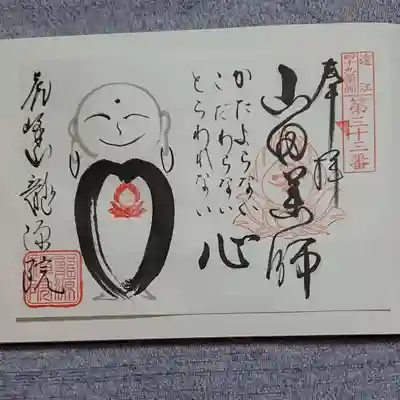 遠江
四十九薬師
第三十三番
奉拝
山田薬師
かたよらない
こだわらない
とらわれない
心
龍源院